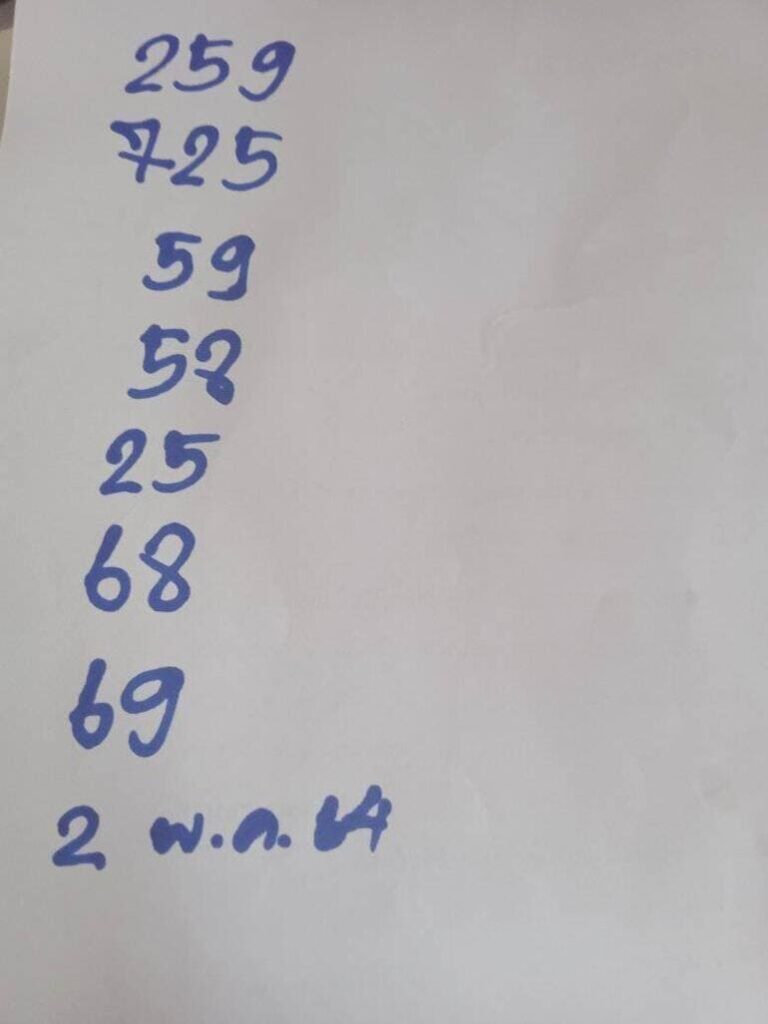 259
725
59
58
25
68
69
2 พ.ค. 64